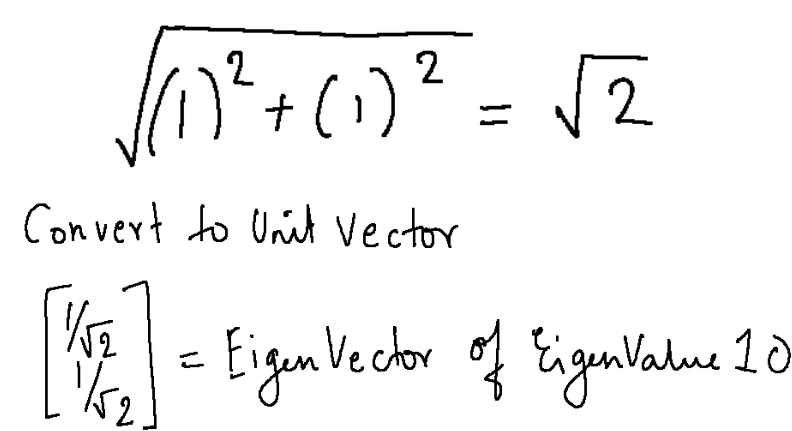 √((1)² + (1)²) = √2
Convert to Unit Vector
[1/√2
1/√2] = EigenVector of EigenValue 10